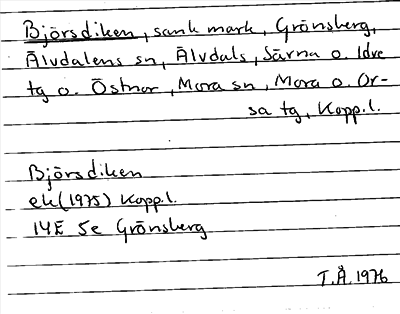 Björsdiken, sank mark, Grönsberg,
Älvdalens sn, Älvdals, Särna o. Idre
tg o. Östnor, Mora sn, Mora o. Or-
sa tg, Kopp.l.
Björsdiken
ek (1975) Kopp.l.
14E 5e Grönsberg
T.Å. 1976